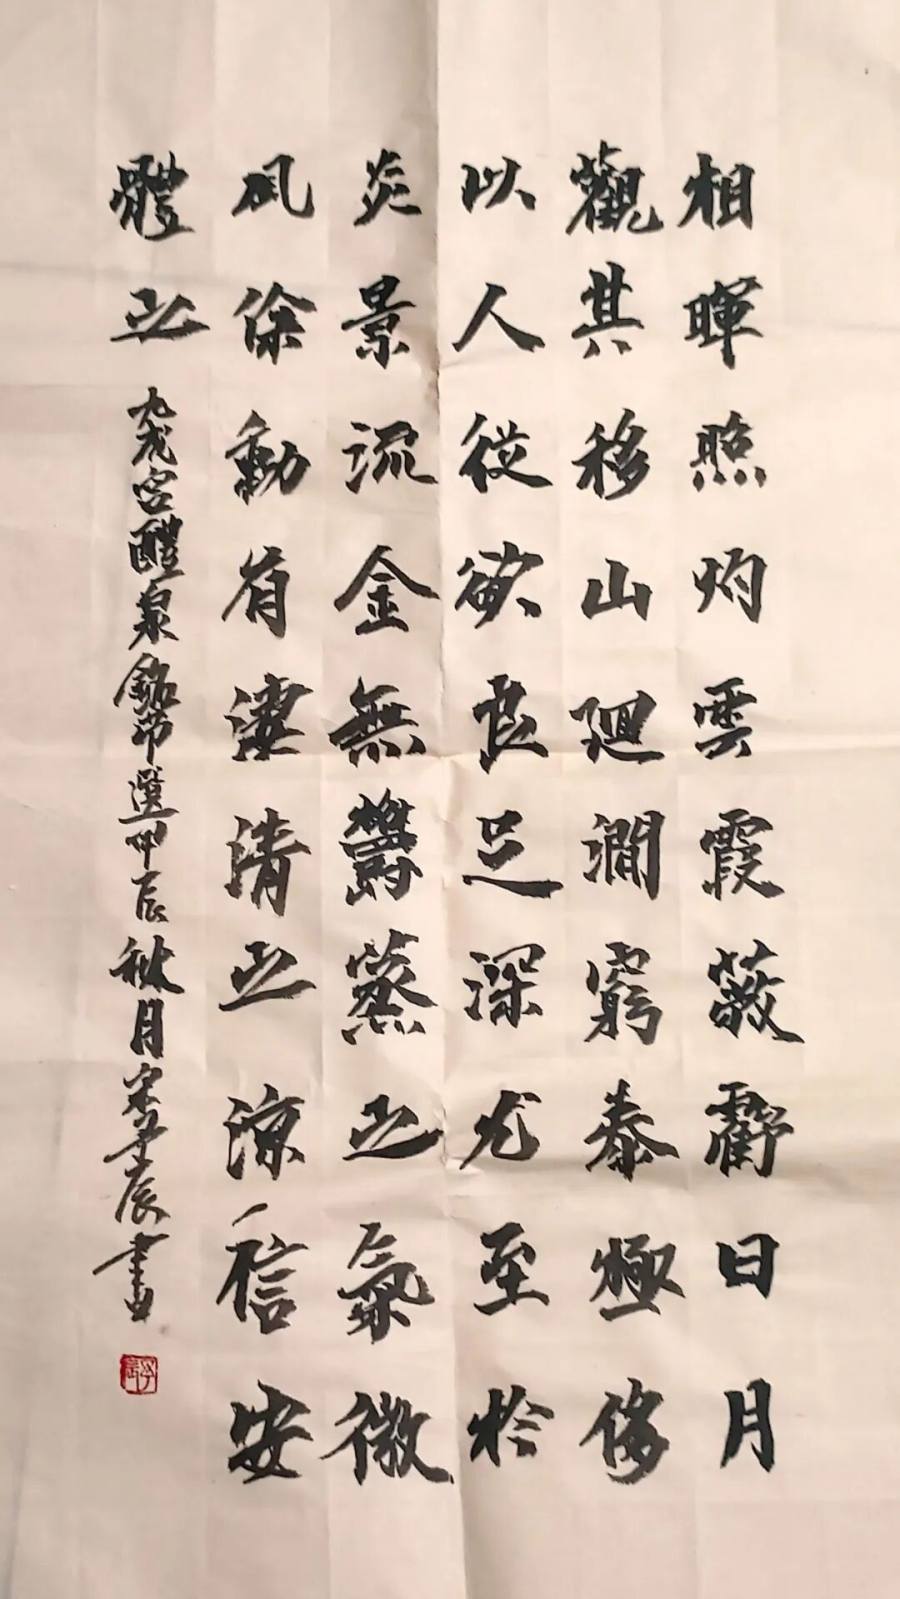 相暉照灼雲霞蔽虧日月
觀其移山迴澗窮泰極侈
以人從欲良足深尤至於
炎景流金無鬱蒸之氣微
風徐動有淒清之涼信安
體之
九成宮醴泉銘節選甲辰秋月宋學辰書